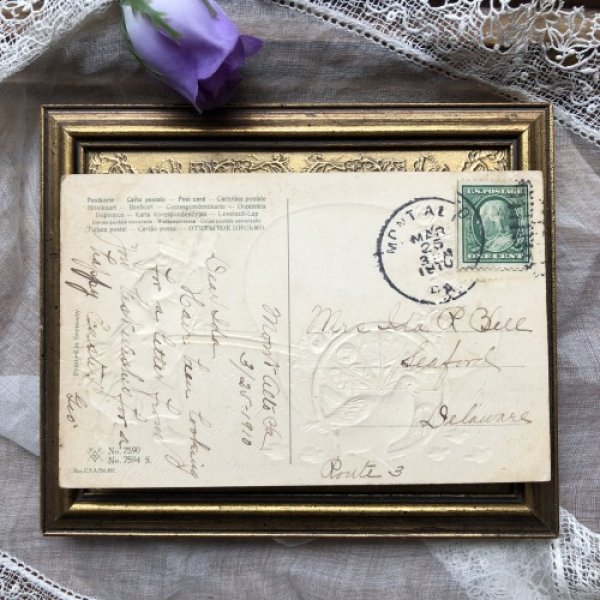 Postkarte — Carta postale — Post card — Cartolina postale
Briefkaart — Brefkort — Correspondenzkarte — Dopisnice
Dopisnica — Karta korespondencyjna — Levelező-Lap
Tarjeta postal — Cartão postal — ОТКРЫТОЕ ПИСЬМО.
Printed in Germany
No. 7590
No. 7594 S.
Mont Alto Pa
3/25-1910
Dear Ida
Have been looking
for a letter from
you
Wishing
a
happy Easter
Geo
MONT ALTO
MAR
25
1910
PA.
U.S. POSTAGE
ONE CENT
Mrs Ida R Bell
Seaford
Delaware
Route 3